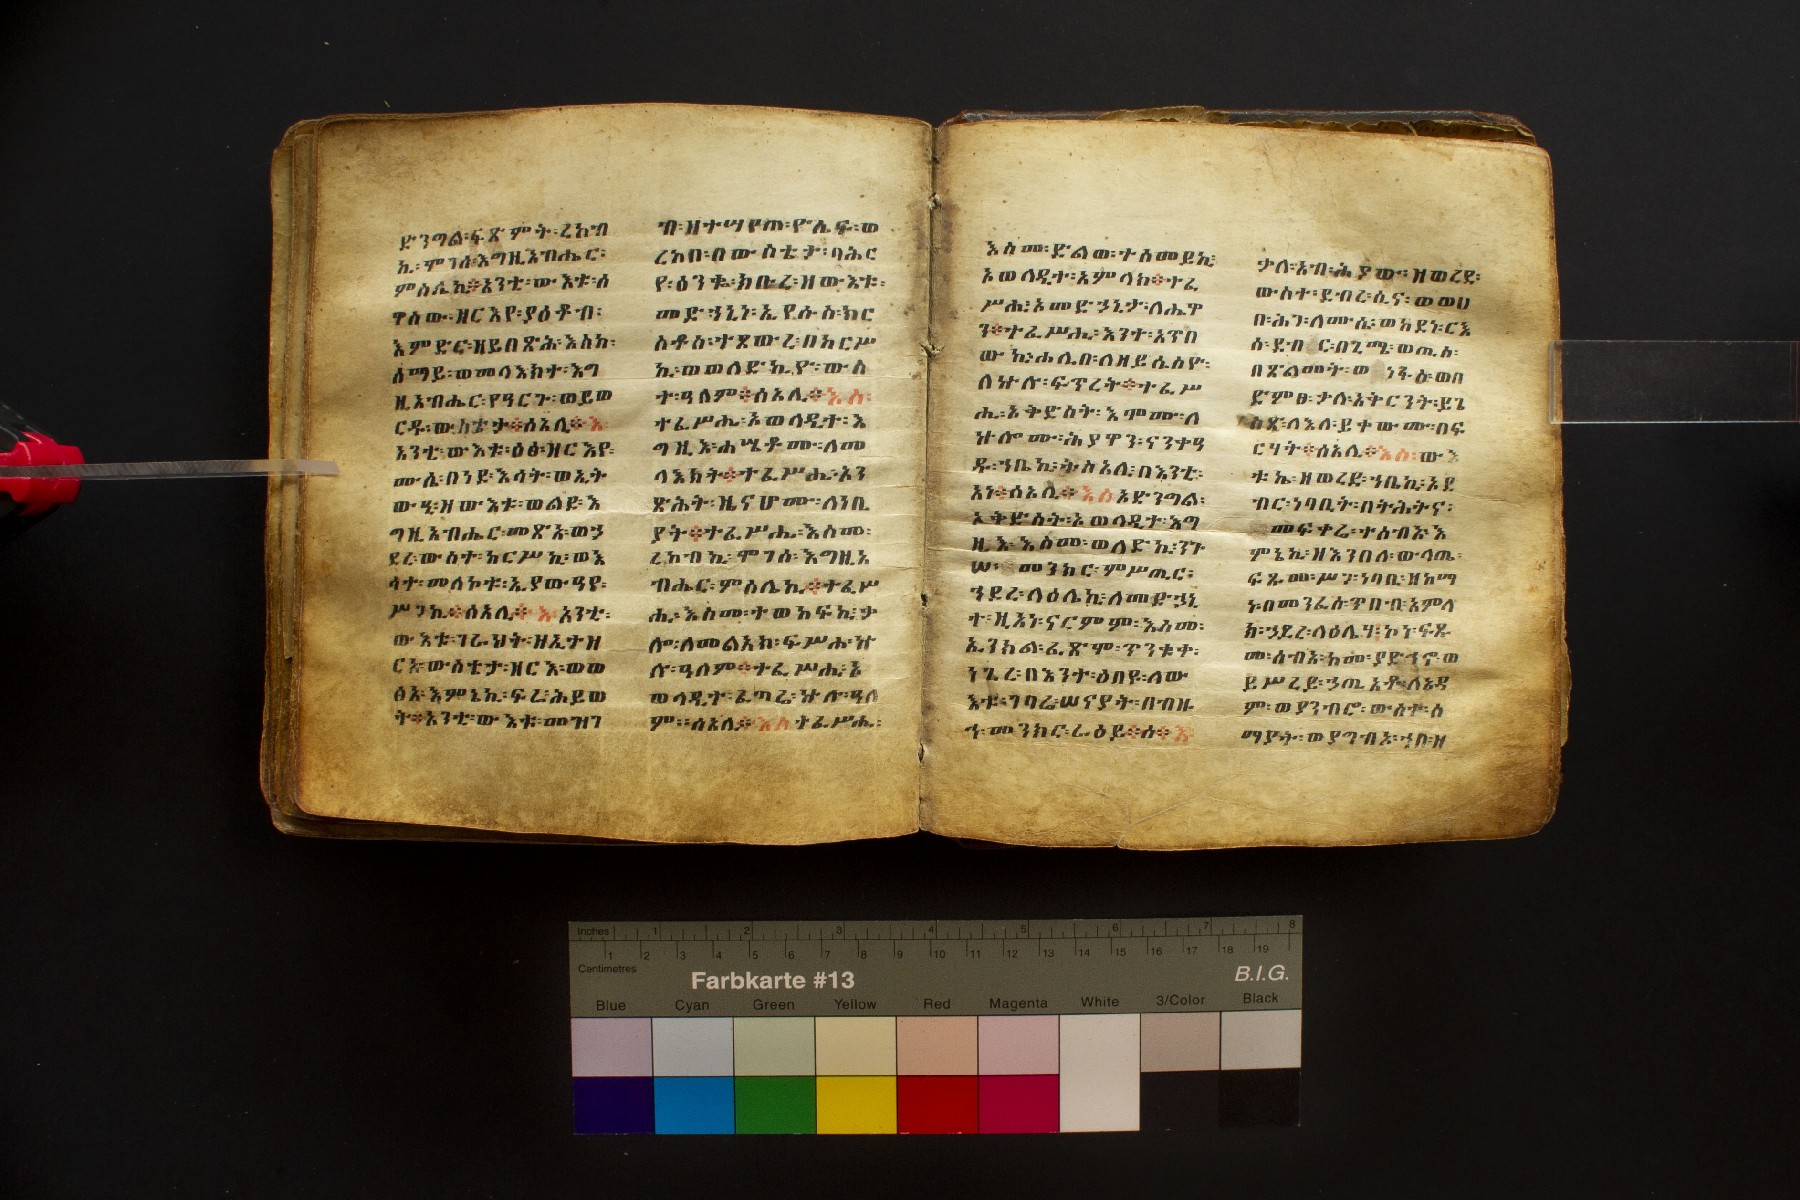 ድንግል፡ፍጽምት፡ረከብ
ኪ፡ሞገሰ፡እግዚአብሔር፡
ምስሌኪ፡አንቲ፡ውእቱ፡ሰ
ዋሰው፡ዘርእየ፡ያዕቆብ፡
እምድር፡ዘይበጽሕ፡እስከ፡
ሰማይ፡ወመላእክተ፡እግ
ዚአብሔር፡የዓርጉ፡ወይወ
ርዱ፡ውስቴታ፡ሰአሊ፡እ
አንቲ፡ውእቱ፡ዕፅ፡ዘርእየ፡
ሙሴ፡በነደ፡እሳት፡ወኢት
ውዒ፡ዘውእቱ፡ወልደ፡እ
ግዚአብሔር፡መጽአ፡ወኃ
ደረ፡ውስተ፡ከርሥኪ፡ወእ
ሳተ፡መለኮቱ፡ኢያውዓየ፡
ሥጋኪ፡ሰአሊ፡እ፡አንቲ፡
ውእቱ፡ገራህት፡ዘኢተዘ
ርአ፡ውስቴታ፡ዘርእ፡ወወ
ፅአ፡እምኔኪ፡ፍሬ፡ሕይወ
ት፡አንቲ፡ውእቱ፡መዝገ
ብ፡ዘተሣየጠ፡ዮሴፍ፡ወ
ረከበ፡በውስቴታ፡ባሕር
የ፡ዕንቈ፡ክቡረ፡ዘውእቱ፡
መድኃኒነ፡ኢየሱስ፡ክር
ስቶስ፡ተጸውረ፡በከርሥ
ኪ፡ወወለድኪዮ፡ውስ
ተ፡ዓለም፡ሰአሊ፡እስ፡
ተፈሥሒ፡ኦወላዲተ፡እ
ግዚእ፡ሐሤቶሙ፡ለመ
ላእክት፡ተፈሥሒ፡አን
ጽሕት፡ዜናሆሙ፡ለነቢ
ያት፡ተፈሥሒ፡እስመ፡
ረከብኪ፡ሞገሰ፡እግዚአ
ብሔር፡ምስሌኪ፡ተፈሥ
ሒ፡እስመ፡ተወከፍኪ፡ቃ
ሎ፡ለመልአክ፡ፍሥሐ፡ዘ
ሉ፡ዓለም፡ተፈሥሒ፡ኦ
ወላዲተ፡ፈጣሬ፡ኵሉ፡ዓለ
ም፡ሰአሊ፡እስ፡ተፈሥሒ፡
እስመ፡ድልወ፡ተሰመይኪ፡
ኦወላዲተ፡አምላክ፡ተፈ
ሥሒ፡ኦመድኃኒታ፡ለሔዋ
ን፡ተፈሥሒ፡እንተ፡አጥበ
ውኪ፡ሐሊበ፡ለዘይሴስዮ፡
ለኵሉ፡ፍጥረት፡ተፈሥ
ሒ፡ኦቅድስት፡እሞሙ፡ለ
ኵሎሙ፡ሕያዋን፡ናንቀዓ
ዱ፡ኀቤኪ፡ትስአሊ፡በእንቲ፡
አነ፡ሰአሊ፡እስ፡ኦድንግል፡
ኦቅድስት፡ኦወላዲተ፡እግ
ዚእ፡እስመ፡ወለድኪ፡ንጉ
ሠ፡መንክር፡ምሥጢር፡
ኀደረ፡ላዕሌኪ፡ለመድኃኒ
ተ፡ዚአነ፡ናርምም፡እስመ፡
ኢንክል፡ፈጽሞ፡ጥንቁቀ፡
ነጊረ፡በእንተ፡ዕበዩ፡ለው
እቱ፡ገባሬ፡ሠናያት፡በብዙ
ኅ፡መንክር፡ራዕይ፡ሰ፡እ
ቃለ፡አብ፡ሕያው፡ዘወረደ፡
ውስተ፡ደብረ፡ሲና፡ወወሀ
በ፡ሕገ፡ለሙሴ፡ወከደነ፡ርእ
ሰ፡ደብር፡በጊሜ፡ወጢስ፡
በጸልመት፡ወነፋስ፡ወበ
ድምፀ፡ቃለ፡አቅርንት፡ይጌ
ሥጽ፡ለእለ፡ይቀውሙ፡በፍ
ርሃት፡ሰአሊ፡እስ፡ው
ቱ፡ኬ፡ዘወረደ፡ኀቤኪ፡ኦደ
ብር፡ነባቢት፡በትሕትና፡
መፍቀሬ፡ተሰብአ፡እ
ምኔኪ፡ዘእንበለ፡ውላጤ፡
ፍጹመ፡ሥጋ፡ነባቢ፡ዘከማ
ነ፡በመንፈሰ፡ጥበብ፡አምላ
ክ፡ኃደረ፡ላዕሌሃ፡ኮነ፡ፍጹ
መ፡ሰብአ፡ከመ፡ያድኅኖ፡ወ
ይሥረይ፡ኀጢአቶ፡ለአዳ
ም፡ወያንብሮ፡ውስተ፡ሰ
ማያት፡ወያግብኦ፡ኀበ፡ዘ
Inches 1 2 3 4 5 6 7 8
1 2 3 4 5 6 7 8 9 10 11 12 13 14 15 16 17 18 19
Centimetres
Farbkarte #13
B.I.G.
Blue Cyan Green Yellow Red Magenta White 3/Color Black